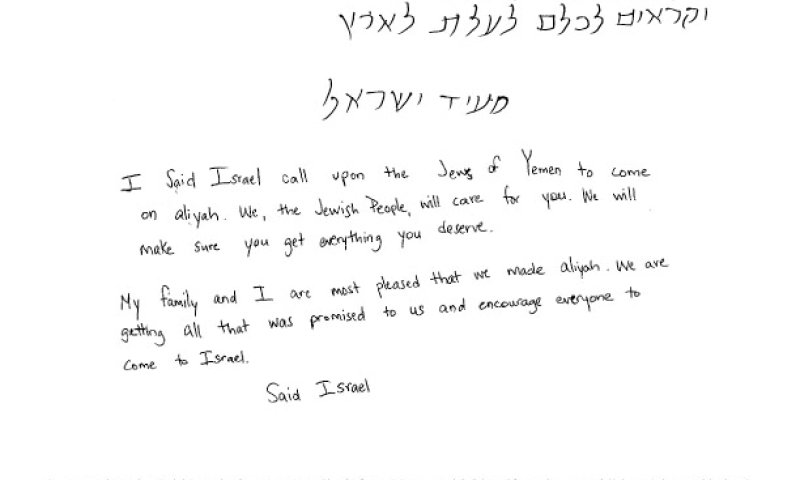 וקראים לכלם לעלת לארץ
סעיד ישראל
I Said Israel call upon the Jews of Yemen to come
on aliyah. We, the Jewish People, will care for you. We will
make sure you get everything you deserve.
My family and I are most pleased that we made aliyah. We are
getting all that was promised to us and encourage everyone to
come to Israel.
Said Israel